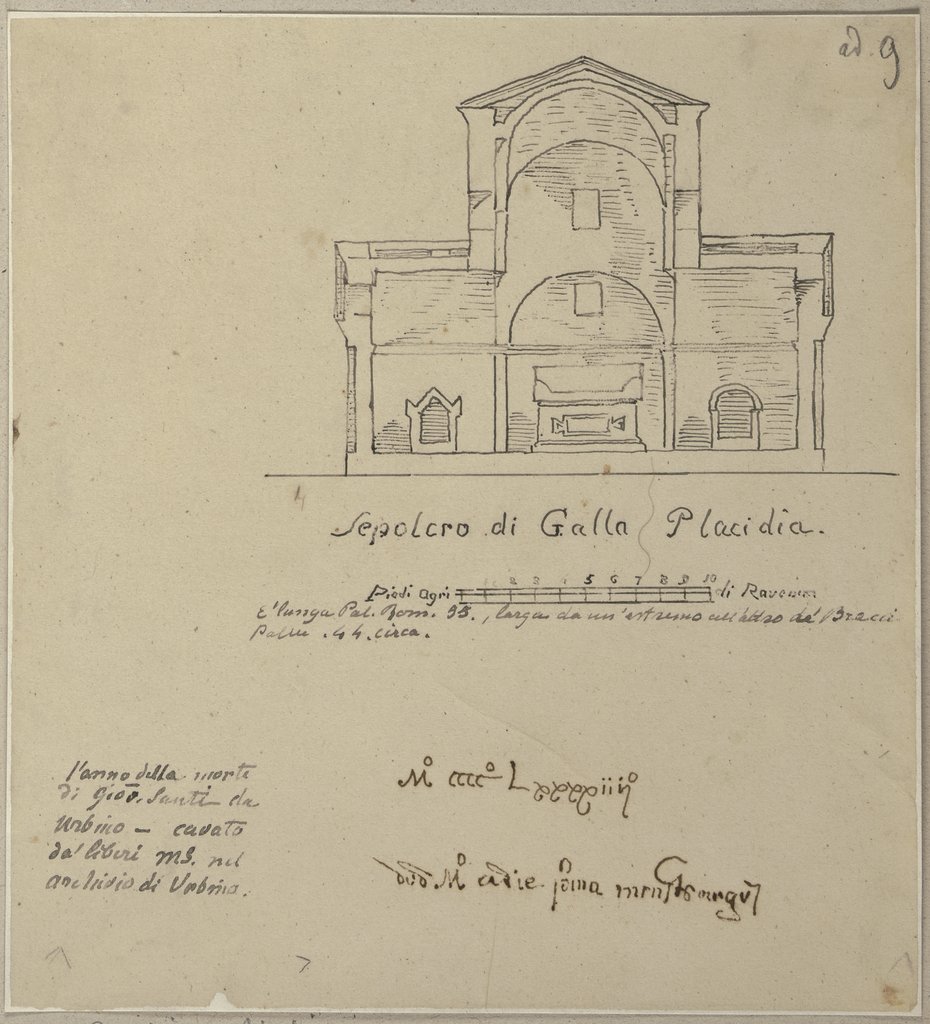 ad. 9
Sepolcro di Galla Placidia.
2 3 4 5 6 7 8 9 10
Piedi Agri di Ravenna
E' lunga Pal. Rom. 55., larga da un' estremo all' altro de' Bracci
Palmi .44. circa.
l'anno della morte
di Giov. Santi da
Urbino – cavato
da' libri MS. nel
archivio di Urbino.
Mº ccccº Lxxxxiiijº
Mº a die